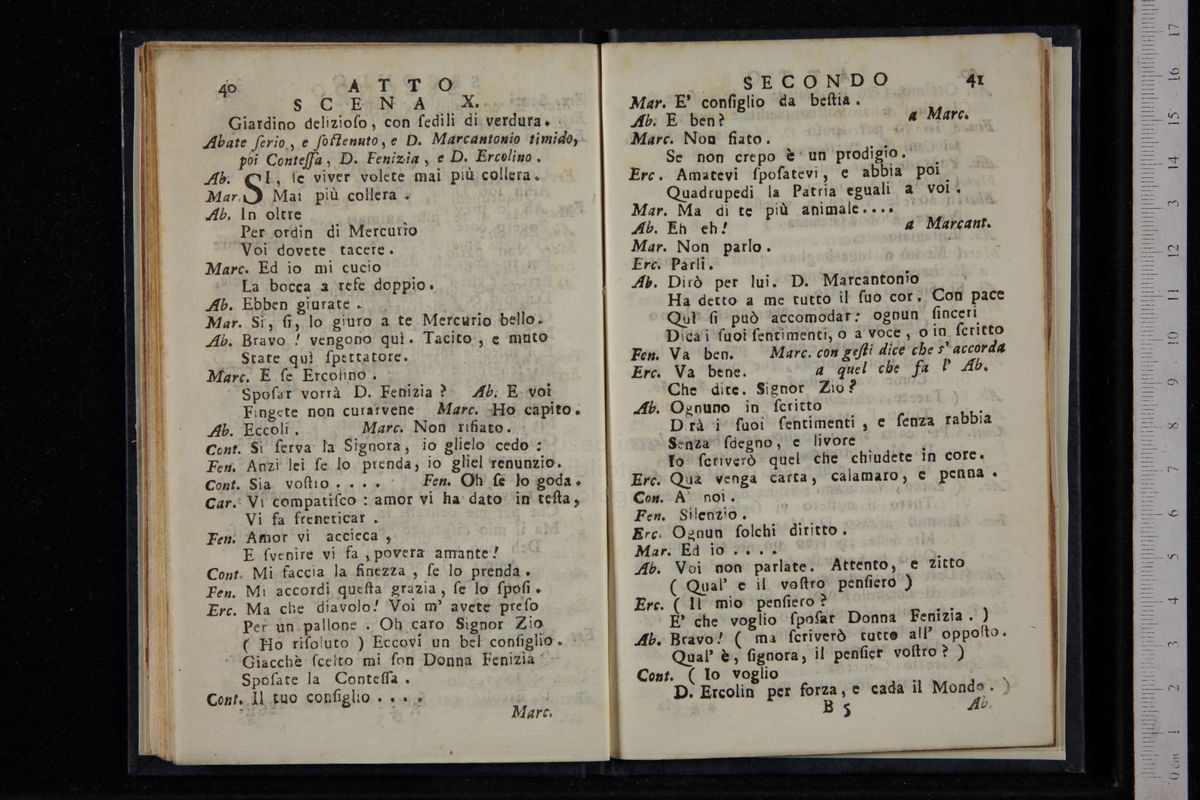 40 ATTO
SCENA X.
Giardino delizioſo, con ſedili di verdura.
Abate ſerio, e ſoſtenuto, e D. Marcantonio timido,
poi Conteſſa, D. Fenizia, e D. Ercolino.
Ab. SI, ſe viver volete mai più collera.
Mar. Mai più collera.
Ab. In oltre
Per ordin di Mercurio
Voi dovete tacere.
Marc. Ed io mi cucio
La bocca a refe doppio.
Ab. Ebben giurate.
Mar. Si, ſi, lo giuro a te Mercurio bello.
Ab. Bravo! vengono quì. Tacito, e muto
State quì ſpettatore.
Marc. E ſe Ercolino.
Spoſar vorrà D. Fenizia? Ab. E voi
Fingete non curarvene Marc. Ho capito.
Ab. Eccoli. Marc. Non rifiato.
Cont. Si ſerva la Signora, io glielo cedo:
Fen. Anzi lei ſe lo prenda, io gliel renunzio.
Cont. Sia voſtro.... Fen. Oh ſe lo goda.
Car. Vi compatiſco: amor vi ha dato in teſta,
Vi fa freneticar.
Fen. Amor vi accieca,
E ſvenire vi fa, povera amante!
Cont. Mi faccia la finezza, ſe lo prenda.
Fen. Mi accordi queſta grazia, ſe lo ſpoſi.
Erc. Ma che diavolo! Voi m' avete preſo
Per un pallone. Oh caro Signor Zio
( Ho riſoluto ) Eccovi un bel conſiglio.
Giacchè ſcelto mi ſon Donna Fenizia
Spoſate la Conteſſa.
Cont. Il tuo conſiglio....
Marc.
SECONDO 41
Mar. E' conſiglio da beſtia.
Ab. E ben? a Marc.
Marc. Non fiato.
Se non crepo è un prodigio.
Erc. Amatevi ſpoſatevi, e abbia poi
Quadrupedi la Patria eguali a voi.
Mar. Ma di te più animale....
Ab. Eh eh! a Marcant.
Mar. Non parlo.
Erc. Parli.
Ab. Dirò per lui. D. Marcantonio
Ha detto a me tutto il ſuo cor. Con pace
Quì ſi può accomodar: ognun ſinceri
Dica i ſuoi ſentimenti, o a voce, o in ſcritto
Fen. Va ben. Marc. con geſti dice che s' accorda
Erc. Va bene. a quel che fa l' Ab.
Che dite. Signor Zio?
Ab. Ognuno in ſcritto
D rà i ſuoi ſentimenti, e ſenza rabbia
Senza ſdegno, e livore
Io ſcriverò quel che chiudete in core.
Erc. Qua venga carta, calamaro, e penna.
Con. A' noi.
Fen. Silenzio.
Erc. Ognun ſolchi diritto.
Mar. Ed io....
Ab. Voi non parlate. Attento, e zitto
( Qual' e il voſtro penſiero )
Erc. ( Il mio penſiero?
E' che voglio ſpoſar Donna Fenizia. )
Ab. Bravo! ( ma ſcriverò tutto all' oppoſto.
Qual' è, ſignora, il penſier voſtro? )
Cont. ( Io voglio
D. Ercolin per forza, e cada il Mondo. )
B 5 Ab.